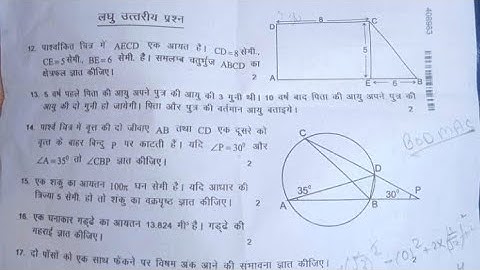 लघु उत्तरीय प्रश्न
12. पार्श्वांकित चित्र में AECD एक आयत है। CD=8 सेमी.,
CE=5 सेमी, BE=6 सेमी. है। समलम्ब चतुर्भुज ABCD का
क्षेत्रफल ज्ञात कीजिए। 2
D 8 C
5
A E 6 B
408983
13. 5 वर्ष पहले पिता की आयु अपने पुत्र की आयु की 3 गुनी थी। 10 वर्ष बाद पिता की आयु अपने पुत्र की
आयु की दो गुनी हो जायेगी। पिता और पुत्र की वर्तमान आयु बताइये। 2
14. पार्श्व चित्र में वृत्त की दो जीवाए AB तथा CD एक दूसरे को
वृत्त के बाहर बिन्दु P पर काटती हैं। यदि ∠P=30° और
∠A=35° तो ∠CBP ज्ञात कीजिए। 2
C
D
35° 30°
A B P
BODMAS
15. एक शंकु का आयतन 100π घन सेमी है। यदि आधार की
त्रिज्या 5 सेमी. हो तो शंकु का वक्रपृष्ठ ज्ञात कीजिए। 2
16. एक घनाकार गड्ढे का आयतन 13.824 मी³ है। गड्ढे की
गहराई ज्ञात कीजिए। 2
17. दो पाँसों को एक साथ फेंकने पर विषम अंक आने की संभावना ज्ञात कीजिए।